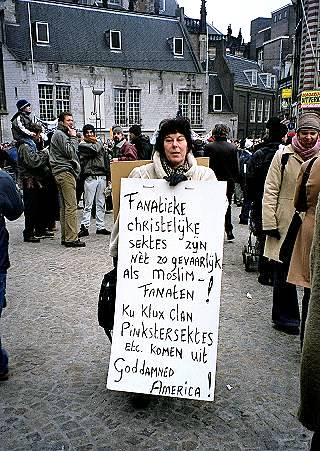 Fanatieke
christelijke
sektes zijn
nèt zo gevaarlijk
als moslim-
fanaten!
Ku Klux Clan
Pinkstersektes
etc. komen uit
Goddamned
America!